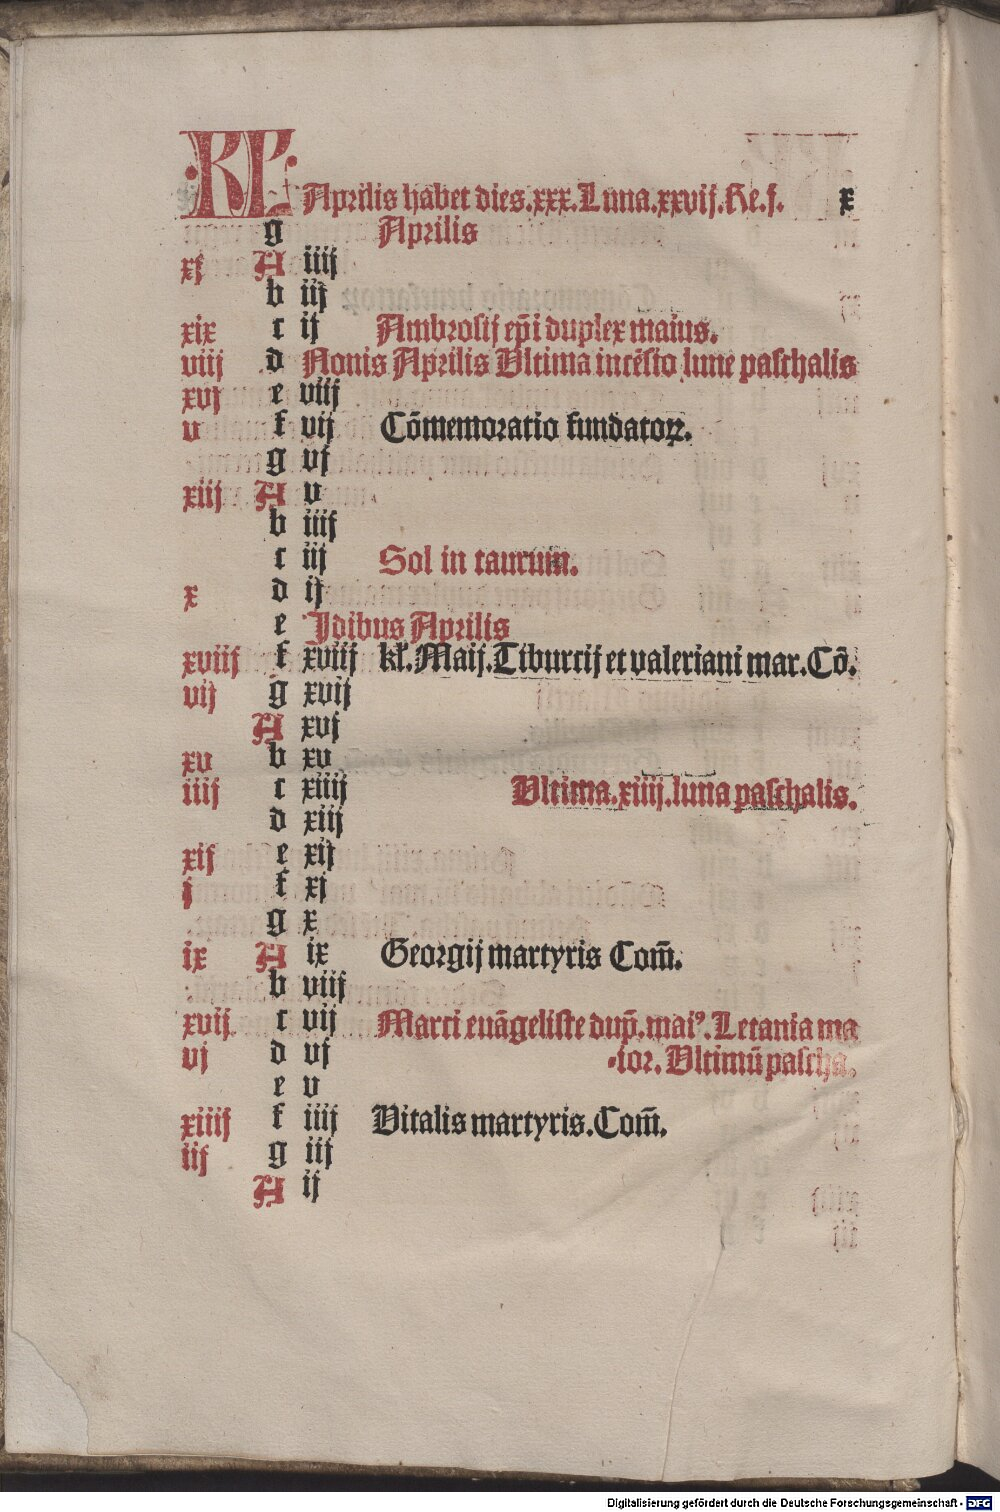 KL Aprilis habet dies.xxx.Luna.xxvij.Re.f. x
g Aprilis
xj A iiij
b iij
xix c ij Ambrosij ep̄i duplex maius.
viij d Nonis Aprilis Vltima incēsio lune paschalis
xvj e viij
v f vij Cōmemoratio fundatoꝝ.
g vj
xiij A v
b iiij
c iij Sol in taurum.
x d ij
e Jdibus Aprilis
xviij f xviij kł.Maij.Tiburcij et valeriani mar.Cō.
vij g xvij
A xvj
xv b xv
iiij c xiiij Vltima.xiiij.luna paschalis.
d xiij
xij e xij
j f xj
g x
ix A ix Georgij martyris Com̄.
b viij
xvij c vij Marci euāgeliste dup̄.mai⁹.Letania ma
vj d vj -ior.Vltimū pascha.
e v
xiiij f iiij Vitalis martyris.Com̄.
iij g iij
A ij
Digitalisierung gefördert durch die Deutsche Forschungsgemeinschaft - DFG